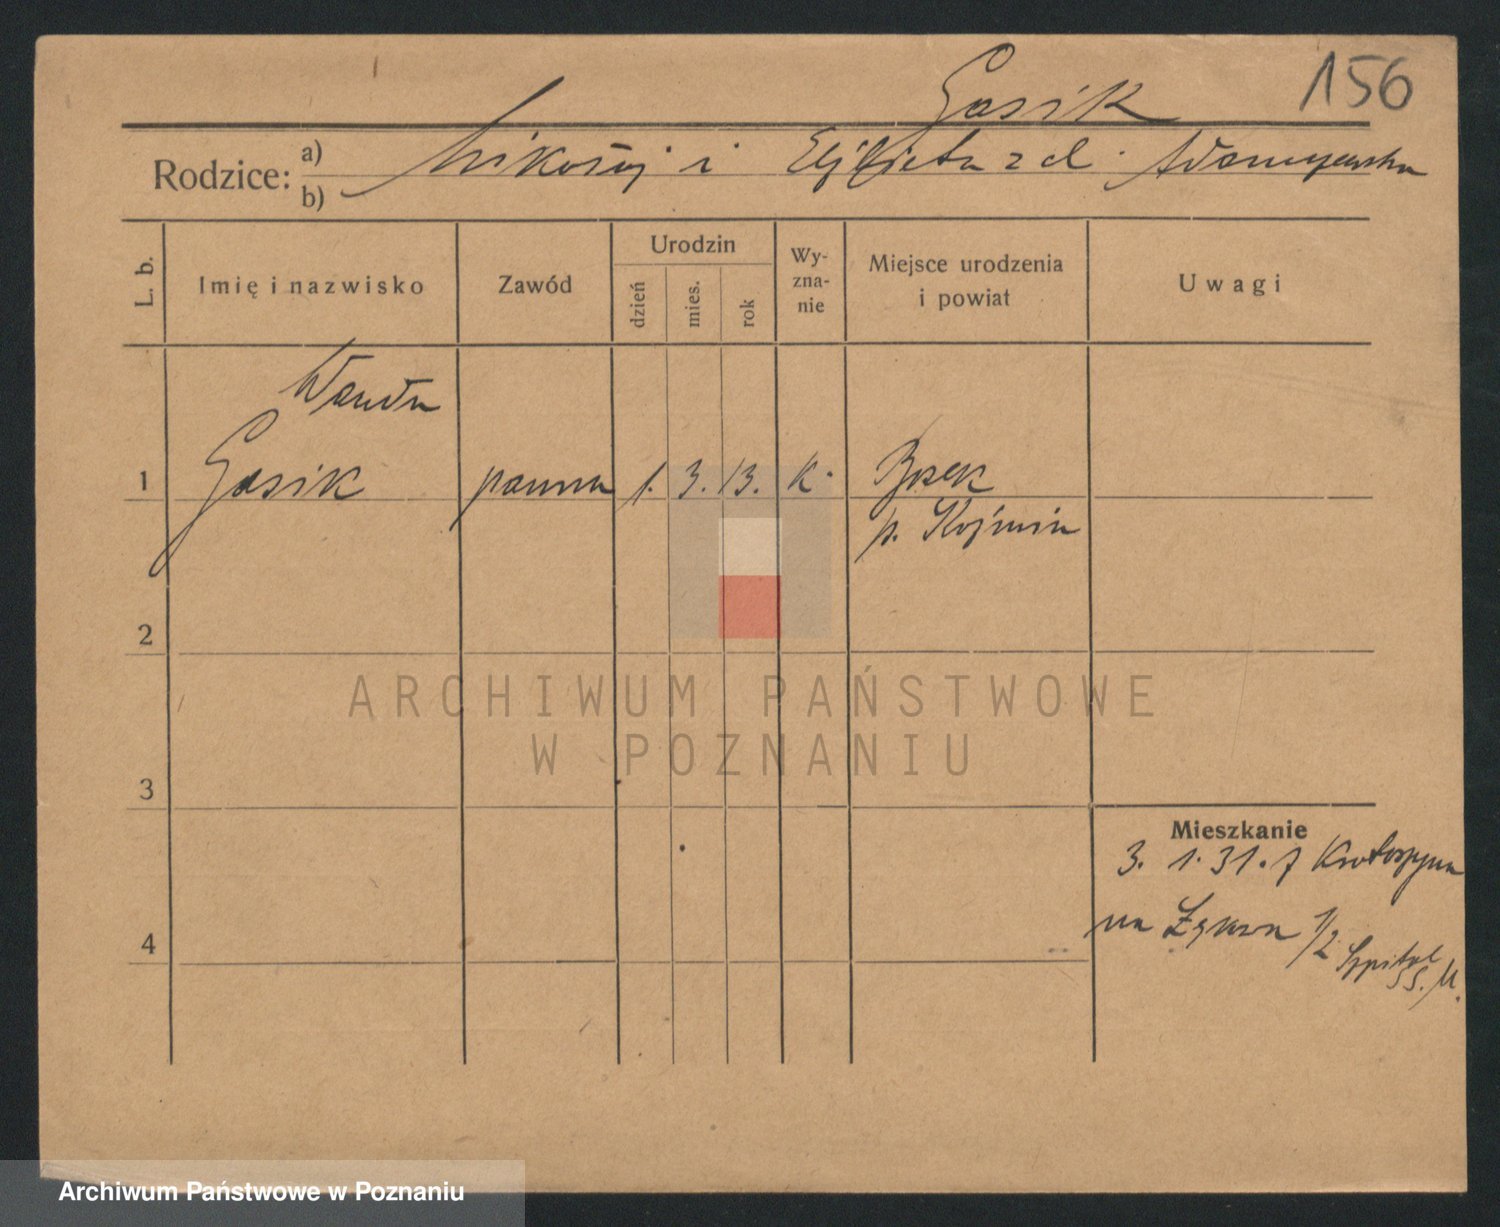 156
Gasik
Rodzice: a) Mikołaj i Elżbieta z d.
b)
L. b.
Imię i nazwisko
Zawód
Urodzin
dzień
mies.
rok
Wy-
zna-
nie
Miejsce urodzenia
i powiat
Uwagi
Wanda
1 Gasik panna 1. 3. 13. k. Borek
p. Koźmin
2
3
4
Mieszkanie
3. 1. 31. z Krotoszyna
na 1/2 Szpital
SS. M.
ARCHIWUM PAŃSTWOWE
W POZNANIU
Archiwum Państwowe w Poznaniu